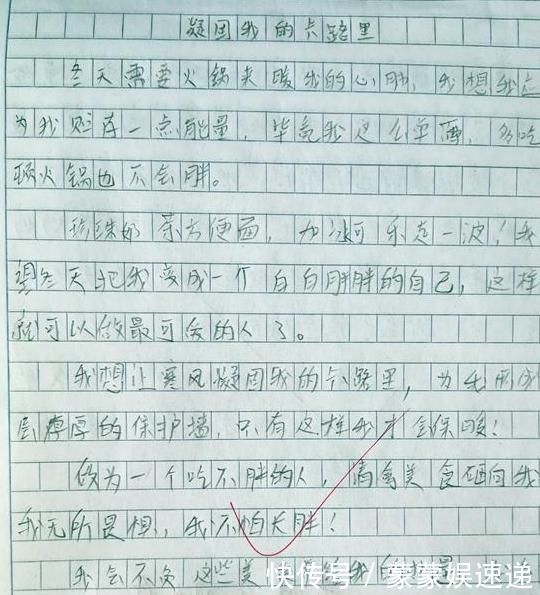 凝固我的卡路里
冬天需要火锅来暖我的心肺,我想我应
为我贮存一点能量,毕竟我这么单薄,多吃
顿火锅也不会胖。
珍珠奶茶方便面,加冰可乐走一波!我
望冬天把我变成一个白白胖胖的自己,这样
就可以做最可爱的人了。
我想让寒风凝固我的卡路里,为我形成
层厚厚的保护墙,只有这样我才会保暖!
做为一个吃不胖的人,请拿美食砸向我
我无所畏惧,我不怕长胖!
我会不负这些美
快传号 / 蒙蒙娱速递